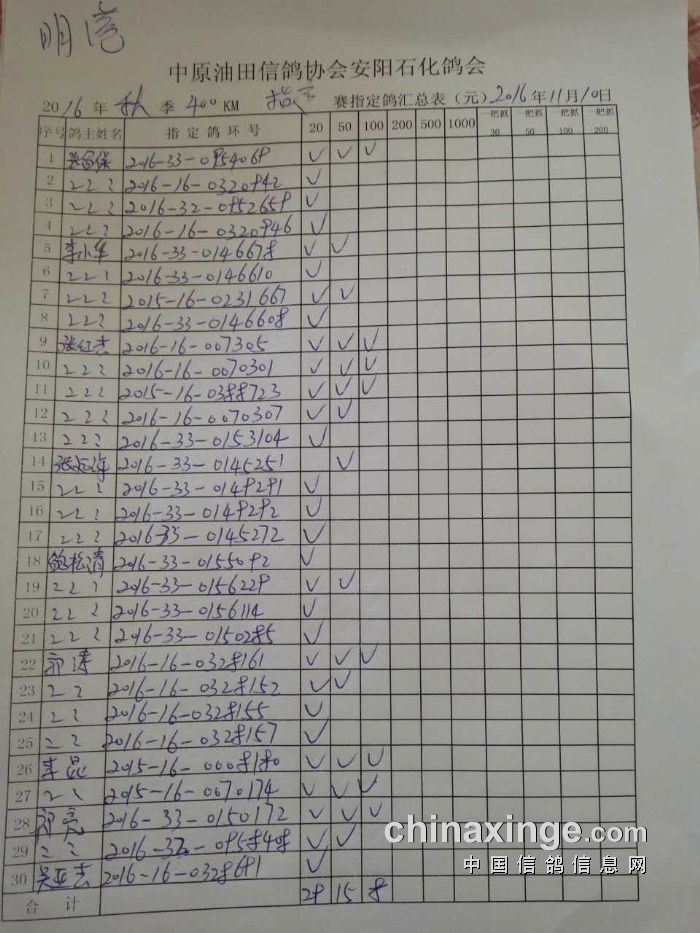 明亮
中原油田信鸽协会安阳石化鸽会
2016年 秋 季 400 KM 指定 赛指定鸽汇总表(元) 2016年11月10日
序号 鸽主姓名 指定鸽环号 20 50 100 200 500 1000 一把抓30 一把抓50 一把抓100 一把抓200
1 2016-33-0954069 ✓ ✓ ✓
2 〃 2016-16-0320942 ✓
3 〃 2016-32-0952659 ✓
4 〃 2016-16-0320946 ✓
5 李小华 2016-33-0146678 ✓ ✓
6 〃 2016-33-0146610 ✓
7 〃 2015-16-0231667 ✓ ✓
8 〃 2016-33-0146608 ✓
9 张红志 2016-16-007305 ✓ ✓ ✓
10 〃 2016-16-0070301 ✓ ✓ ✓
11 〃 2015-16-0388723 ✓ ✓ ✓
12 〃 2016-16-0070307 ✓ ✓
13 〃 2016-33-0153104 ✓
14 2016-33-0145251 ✓
15 〃 2016-33-0149291 ✓
16 〃 2016-33-0149292 ✓
17 〃 2016-33-0145272 ✓
18 鲍松清 2016-33-0155092 ✓
19 〃 2016-33-0156229 ✓ ✓
20 〃 2016-33-0156114 ✓
21 〃 2016-33-0150285 ✓
22 郭涛 2016-16-0328161 ✓ ✓ ✓
23 〃 2016-16-0328152 ✓ ✓
24 〃 2016-16-0328155 ✓
25 〃 2016-16-0328157 ✓
26 李昆 2015-16-0008180 ✓ ✓ ✓
27 〃 2015-16-0070174 ✓ ✓ ✓
28 郭亮 2016-33-0150172 ✓ ✓ ✓
29 〃 2016-32-0958408 ✓ ✓
30 吴亚志 2016-16-0328691 ✓
合计 29 15 8
chinaxinge.com
中国信鸽信息网